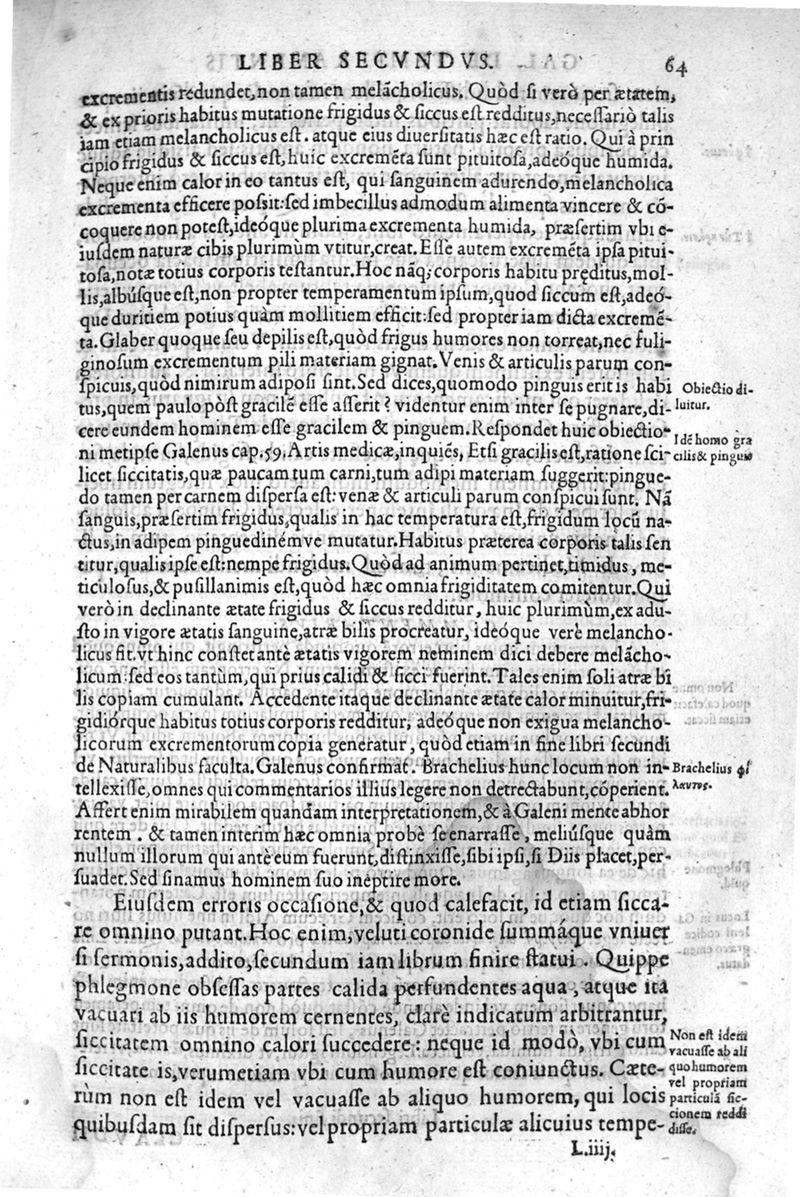 LIBER SECVNDVS. 64
excrementis redundet, non tamen melãcholicus. Quòd si verò per ætatem,
& ex prioris habitus mutatione frigidus & siccus est redditus, necessariò talis
iam etiam melancholicus est. atque eius diuersitatis hæc est ratio. Qui à prin
cipio frigidus & siccus est, huic excremẽta sunt pituitosa, adeóque humida.
Neque enim calor in eo tantus est, qui sanguinem adurendo, melancholica
excrementa efficere possit: sed imbecillus admodum alimenta vincere & cõ-
coquere non potest, ideóque plurima excrementa humida, præsertim vbi e-
iusdem naturæ cibis plurimùm vtitur, creat. Esse autem excremẽta ipsa pitui-
tosa, notæ totius corporis testantur. Hoc nãq; corporis habitu pręditus, mol-
lis, albúsque est, non propter temperamentum ipsum, quod siccum est, adeó-
que duritiem potius quàm mollitiem efficit: sed propter iam dicta excremẽ-
ta. Glaber quoque seu depilis est, quòd frigus humores non torreat, nec fuli-
ginosum excrementum pili materiam gignat. Venis & articulis parum con-
spicuis, quòd nimirum adiposi sint. Sed dices, quomodo pinguis erit is habi
Obiectio di-
tus, quem paulo pòst gracilẽ esse asserit? videntur enim inter se pugnare, di-
luitur.
cere eundem hominem esse gracilem & pinguem. Respondet huic obiectio-
Idẽ homo gra
ni metipse Galenus cap. 59. Artis medicæ, inquiẽs, Etsi gracilis est, ratione sci-
cilis & pinguis
licet siccitatis, quæ paucam tum carni, tum adipi materiam suggerit: pingue-
do tamen per carnem dispersa est: venæ & articuli parum conspicui sunt. Nã
sanguis, præsertim frigidus, qualis in hac temperatura est, frigidum locũ na-
ctus, in adipem pinguedinémve mutatur. Habitus præterea corporis talis sen
titur, qualis ipse est: nempe frigidus. Quòd ad animum pertinet, timidus, me-
ticulosus, & pusillanimis est, quòd hæc omnia frigiditatem comitentur. Qui
verò in declinante ætate frigidus & siccus redditur, huic plurimùm, ex adu-
sto in vigore ætatis sanguine, atræ bilis procreatur, ideóque verè melancho-
licus fit. vt hinc constet antè ætatis vigorem neminem dici debere melãcho-
licum: sed eos tantùm, qui prius calidi & sicci fuerint. Tales enim soli atræ bi
lis copiam cumulant. Accedente itaque declinante ætate calor minuitur, fri-
gidiórque habitus totius corporis redditur, adeóque non exigua melancho-
licorum excrementorum copia generatur, quòd etiam in fine libri secundi
de Naturalibus faculta. Galenus confirmat. Brachelius hunc locum non in-
Brachelius φί
tellexisse, omnes qui commentarios illius legere non detrectabunt, cõperient.
λαυτος.
Affert enim mirabilem quandam interpretationem, & à Galeni mente abhor
rentem. & tamen interim hæc omnia probè se enarrasse, meliúsque quàm
nullum illorum qui antè eum fuerunt, distinxisse, sibi ipsi, si Diis placet, per-
suadet. Sed sinamus hominem suo ineptire more.
Eiusdem erroris occasione, & quod calefacit, id etiam sicca-
re omnino putant. Hoc enim, veluti coronide summáque vniuer
si sermonis, addito, secundum iam librum finire statui. Quippe
phlegmone obsessas partes calida perfundentes aqua, atque ita
vacuari ab iis humorem cernentes, clarè indicatum arbitrantur,
siccitatem omnino calori succedere: neque id modò, vbi cum
Non est idem
vacuasse ab ali
siccitate is, verumetiam vbi cum humore est coniunctus. Cæte-
quo humorem
vel propriam
rùm non est idem vel vacuasse ab aliquo humorem, qui locis
particulã sic-
cionem reddi
quibusdam sit dispersus: vel propriam particulæ alicuius tempe-
disse.
L.iiij.